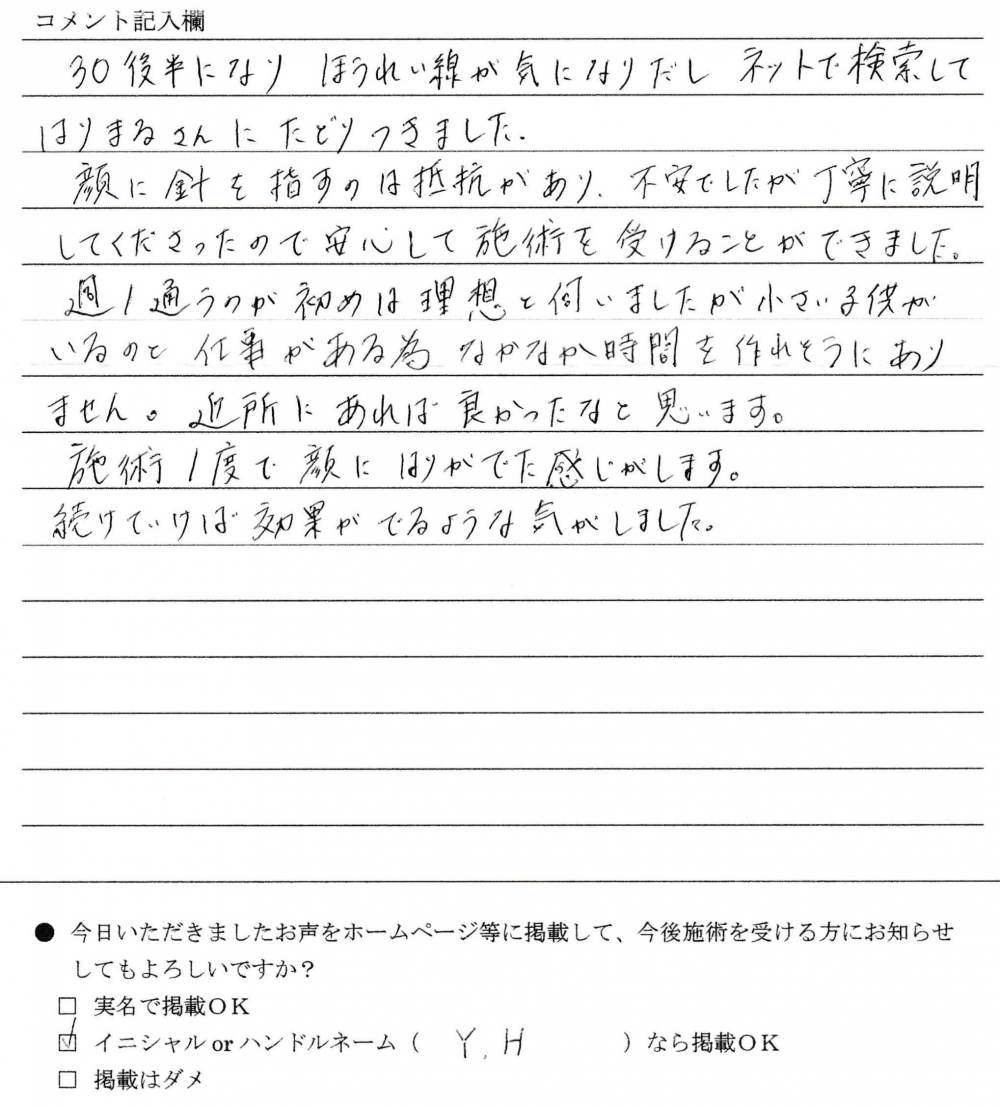 コメント記入欄
30後半になり ほうれい線が気になりだし ネットで検索して
はりまるさんにたどりつきました.
顔に針を指すのは抵抗があり、不安でしたが丁寧に説明
してくださったので安心して施術を受けることができました。
週1通うのが初めは理想と伺いましたが小さい子供が
いるのと仕事がある為 なかなか時間を作れそうにあり
ません。近所にあれば良かったなと思います。
施術1度で顔にはりがでた感じがします。
続けていけば効果がでるような気がしました。
● 今日いただきましたお声をホームページ等に掲載して、今後施術を受ける方にお知らせ
してもよろしいですか？
□ 実名で掲載OK
☑ イニシャルorハンドルネーム（ Y,H ）なら掲載OK
□ 掲載はダメ